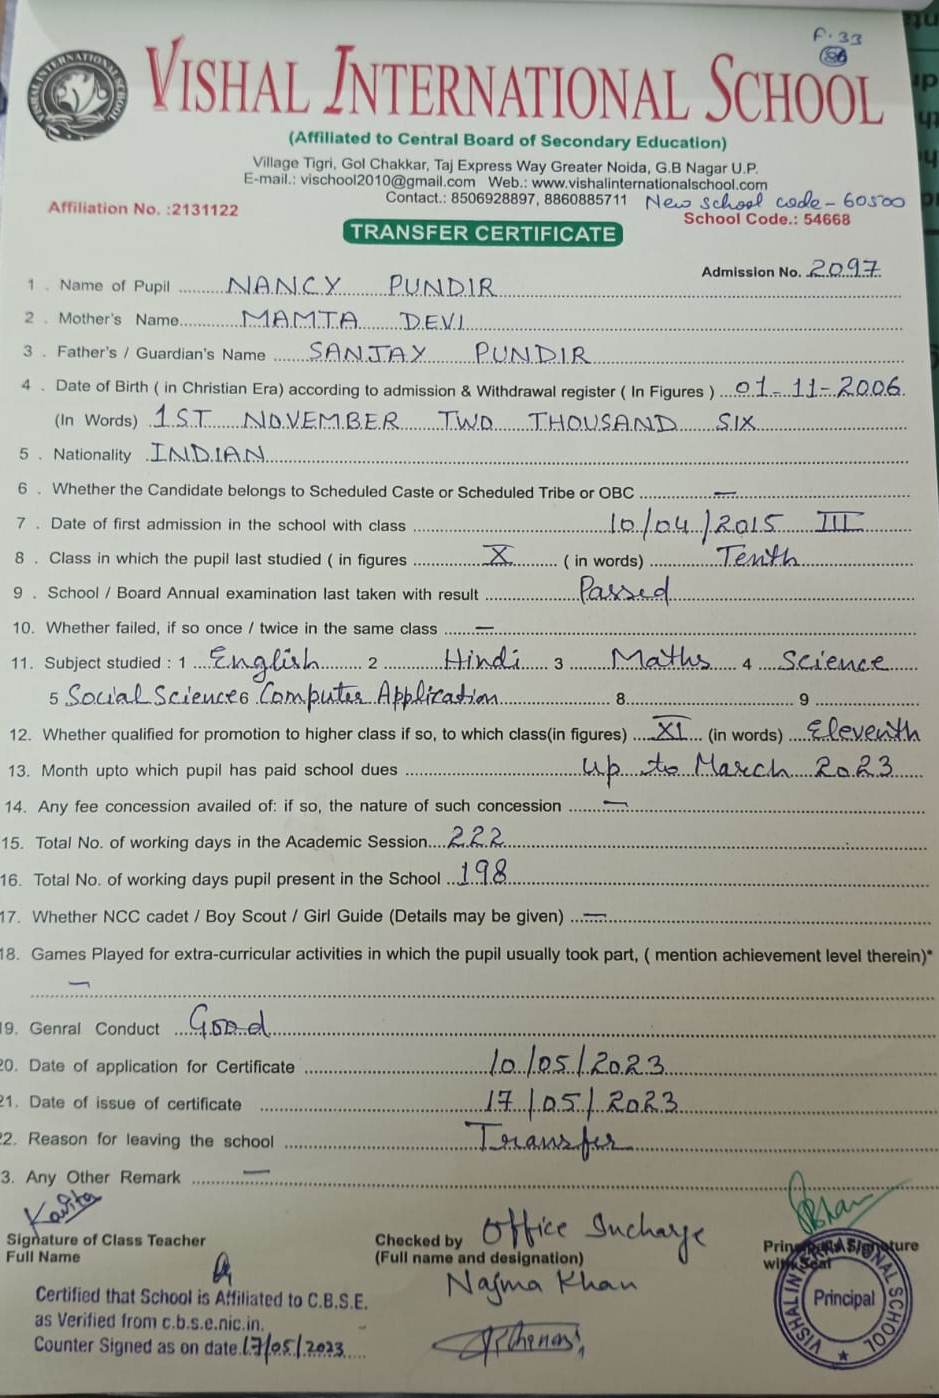 F.33
VISHAL INTERNATIONAL SCHOOL
(Affiliated to Central Board of Secondary Education)
Village Tigri, Gol Chakkar, Taj Express Way Greater Noida, G.B Nagar U.P.
E-mail.: vischool2010@gmail.com Web.: www.vishalinternationalschool.com
Contact.: 8506928897, 8860885711 New School code - 60500
Affiliation No. :2131122 School Code.: 54668
TRANSFER CERTIFICATE
Admission No. 2097
1 . Name of Pupil NANCY PUNDIR
2 . Mother's Name MAMTA DEVI
3 . Father's / Guardian's Name SANJAY PUNDIR
4 . Date of Birth ( in Christian Era) according to admission & Withdrawal register ( In Figures ) 01-11-2006
(In Words) 1ST NOVEMBER TWO THOUSAND SIX
5 . Nationality INDIAN
6 . Whether the Candidate belongs to Scheduled Caste or Scheduled Tribe or OBC —
7 . Date of first admission in the school with class 10/04/2015 III
8 . Class in which the pupil last studied ( in figures X ( in words) Tenth
9 . School / Board Annual examination last taken with result Passed
10. Whether failed, if so once / twice in the same class —
11. Subject studied : 1 English 2 Hindi 3 Maths 4 Science
5 Social Science 6 Computer Application 8 9
12. Whether qualified for promotion to higher class if so, to which class(in figures) XI (in words) Eleventh
13. Month upto which pupil has paid school dues up to March 2023
14. Any fee concession availed of: if so, the nature of such concession —
15. Total No. of working days in the Academic Session 222
16. Total No. of working days pupil present in the School 198
17. Whether NCC cadet / Boy Scout / Girl Guide (Details may be given) —
18. Games Played for extra-curricular activities in which the pupil usually took part, ( mention achievement level therein)*
—
19. Genral Conduct Good
20. Date of application for Certificate 10/05/2023
21. Date of issue of certificate 17/05/2023
22. Reason for leaving the school Transfer
3. Any Other Remark —
Kavita
Signature of Class Teacher
Full Name
Checked by Office Incharge
(Full name and designation)
Najma Khan
Principal's Signature
with Seal
VISHAL INTERNATIONAL SCHOOL
Principal
Certified that School is Affiliated to C.B.S.E.
as Verified from c.b.s.e.nic.in.
Counter Signed as on date 17/05/2023